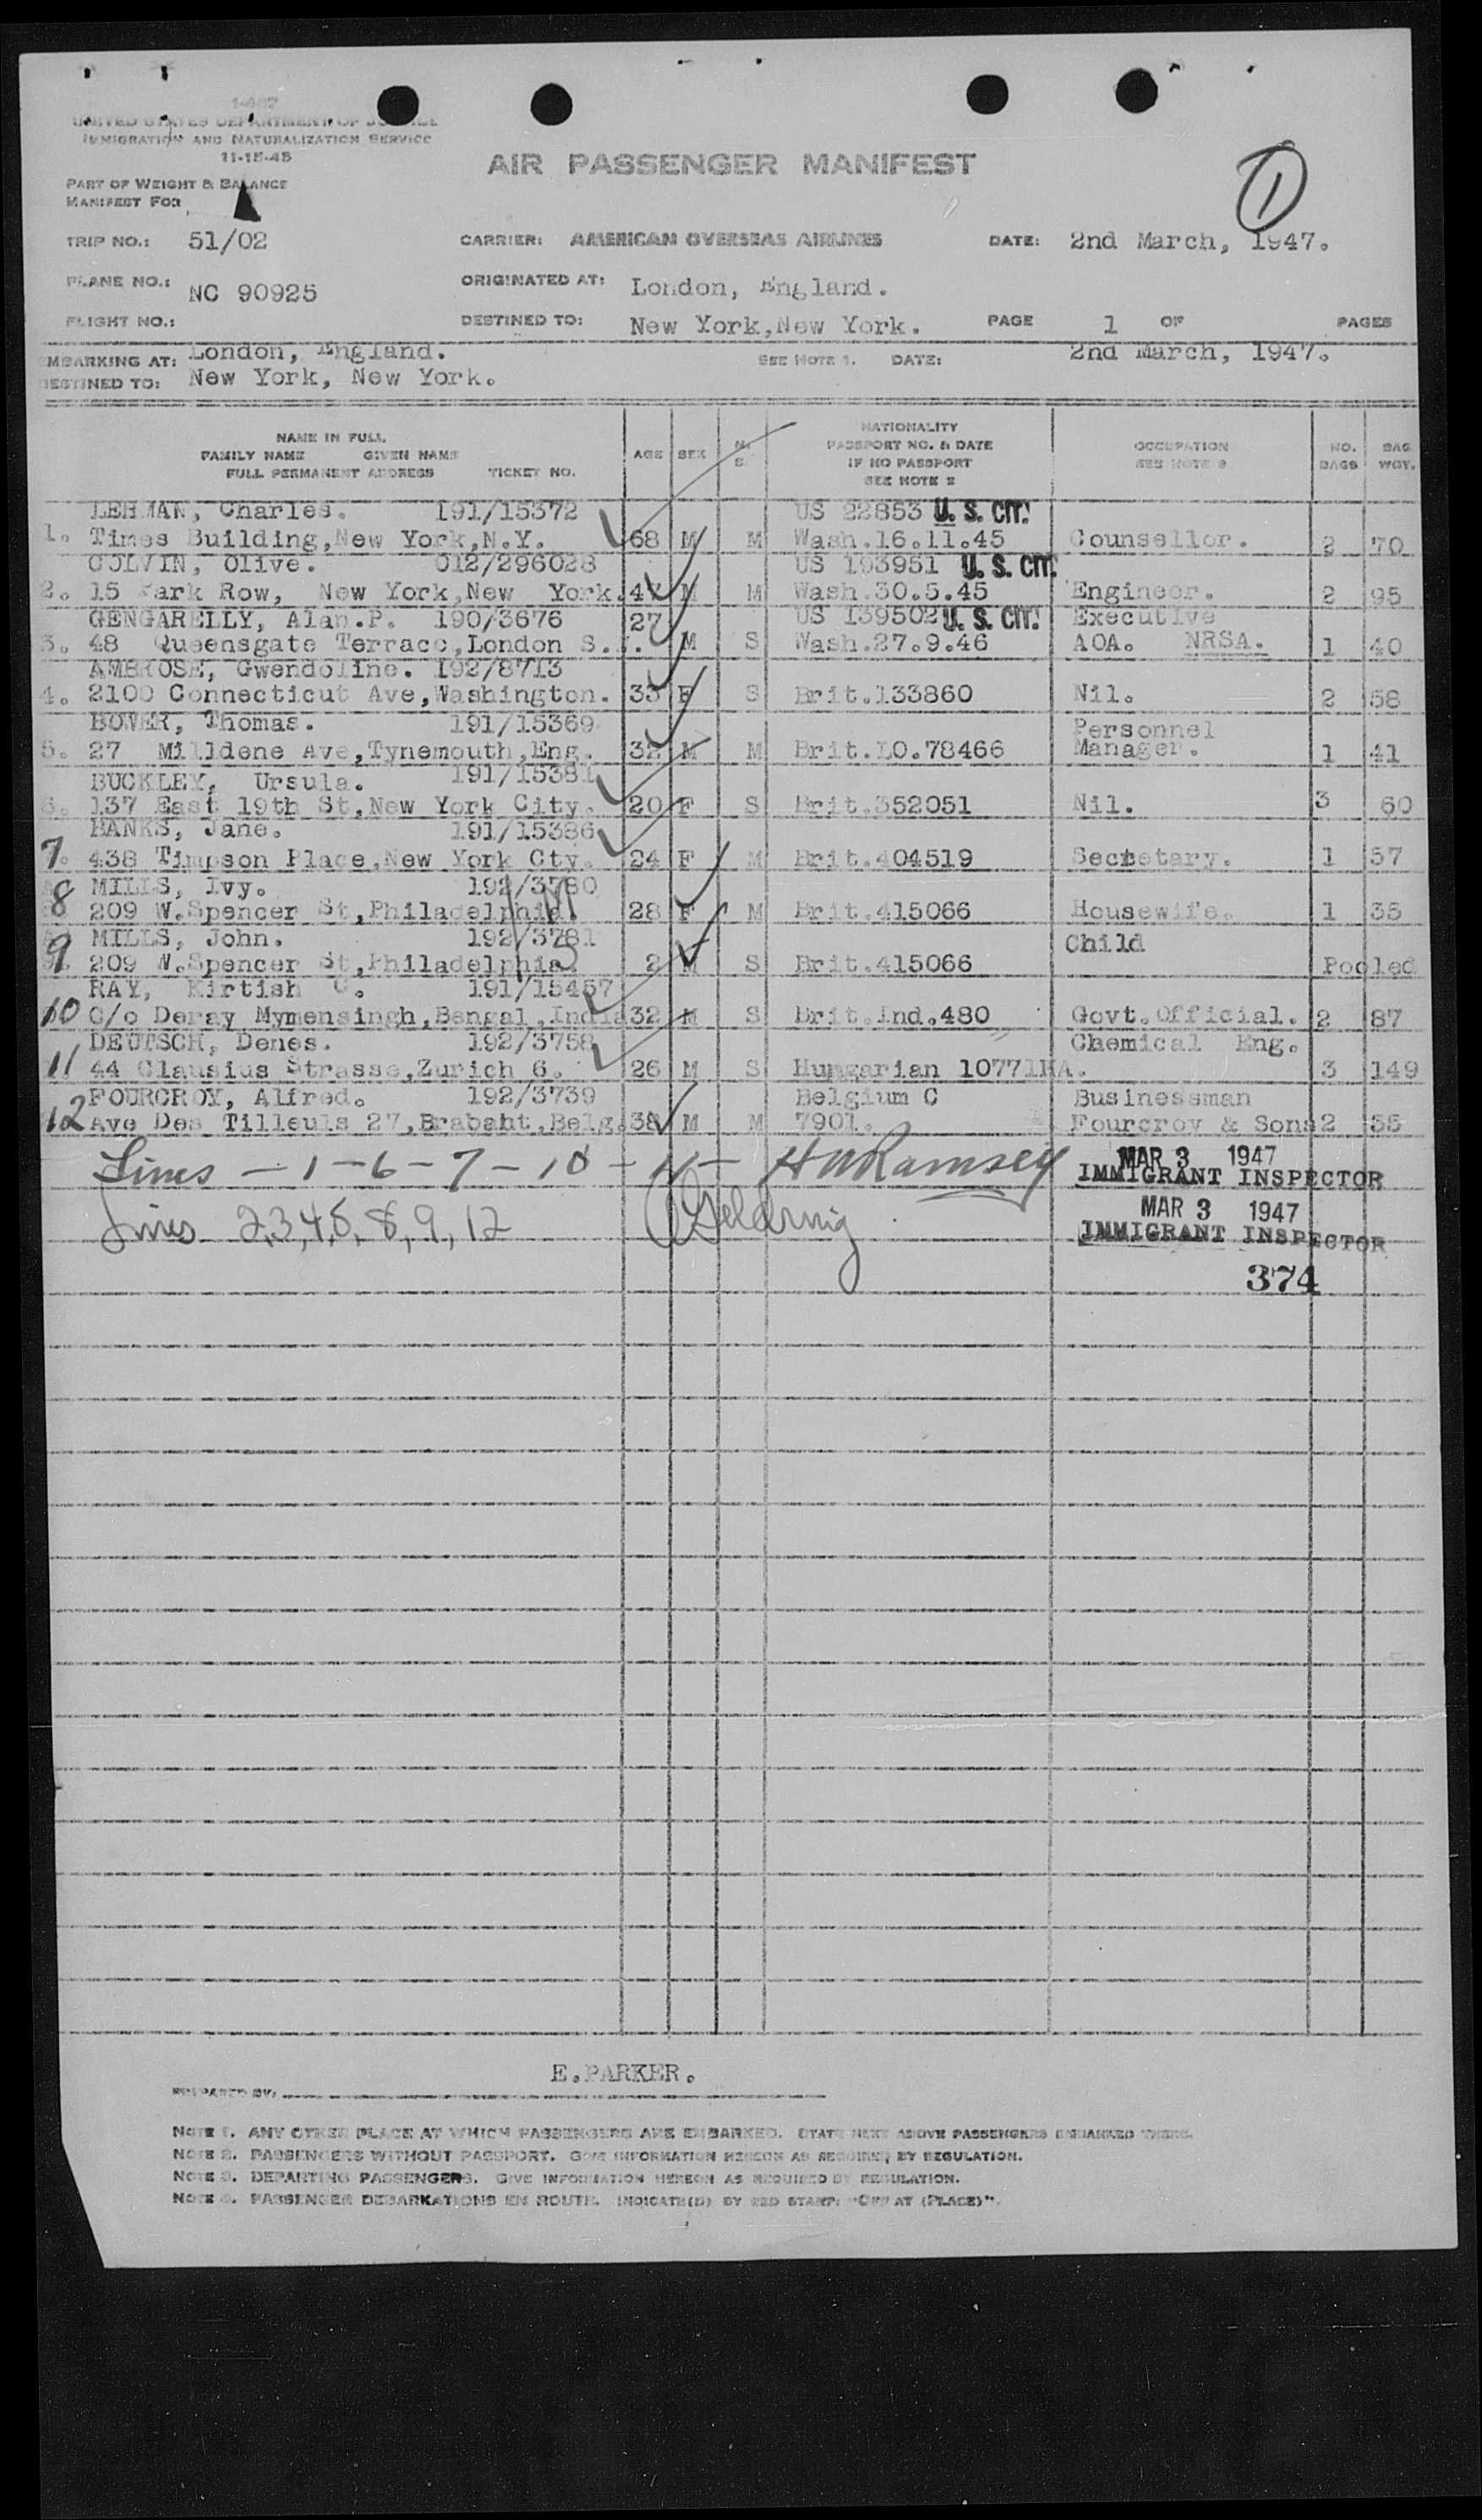 1-467
UNITED STATES DEPARTMENT OF JUSTICE
IMMIGRATION AND NATURALIZATION SERVICE
11-15-45
AIR PASSENGER MANIFEST
1
PART OF WEIGHT & BALANCE
MANIFEST FOR
TRIP NO.: 51/02 CARRIER: AMERICAN OVERSEAS AIRLINES DATE: 2nd March, 1947.
PLANE NO.: NC 90925 ORIGINATED AT: London, England.
FLIGHT NO.: DESTINED TO: New York,New York. PAGE 1 OF PAGES
EMBARKING AT: London, England. SEE NOTE 1. DATE: 2nd March, 1947.
DESTINED TO: New York, New York.
NAME IN FULL
FAMILY NAME GIVEN NAME
FULL PERMANENT ADDRESS TICKET NO.
AGE SEX M. S. NATIONALITY
PASSPORT NO. & DATE
IF NO PASSPORT
SEE NOTE 2
OCCUPATION
SEE NOTE 3
NO. BAGS BAG WGT.
LEHMAN, Charles. 191/15372 US 22853 U. S. CIT.
1. Times Building,New York,N.Y. 68 M M Wash.16.11.45 Counsellor. 2 70
COLVIN, Olive. 012/296028 US 193951 U. S. CIT.
2. 15 Park Row, New York,New York. 47 M M Wash.30.5.45 Engineer. 2 95
GENGARELLY, Alan.P. 190/3676 27 US 139502 U. S. CIT. Executive
3. 48 Queensgate Terrace,London S.. M S Wash.27.9.46 AOA. NRSA. 1 40
AMBROSE, Gwendoline. 192/8713
4. 2100 Connecticut Ave,Washington. 33 F S Brit.133860 Nil. 2 58
BOWER, Thomas. 191/15369 Personnel
5. 27 Milldene Ave,Tynemouth,Eng. 32 M M Brit.LO.78466 Manager. 1 41
BUCKLEY, Ursula. 191/15381
6. 137 East 19th St,New York City. 20 F S Brit.352051 Nil. 3 60
BANKS, Jane. 191/15386
7. 438 Timpson Place,New York Cty. 24 F M Brit.404519 Secretary. 1 57
MILLS, Ivy. 192/3780
8 209 W.Spencer St,Philadelphia. 28 F M Brit.415066 Housewife. 1 35
MILLS, John. 192/3781 Child
9 209 W.Spencer St,Philadelphia. 2 M S Brit.415066 Pooled
RAY, Kirtish C. 191/15457
10 C/o Deray Mymensingh,Bengal,India 32 M S Brit.Ind.480 Govt.Official. 2 87
DEUTSCH, Denes. 192/3758 Chemical Eng.
11 44 Clausius Strasse,Zurich 6. 26 M S Hungarian 10771HA. 3 149
FOURCROY, Alfred. 192/3739 Belgium C Businessman
12 Ave Des Tilleuls 27,Brabant,Belg. 38 M M 7901. Fourcroy & Sons 2 35
Lines - 1 - 6 - 7 - 10 - 11 - HWRamsey MAR 3 1947
IMMIGRANT INSPECTOR
Lines 2,3,4,5, 8, 9, 12 MAR 3 1947
IMMIGRANT INSPECTOR
374
E.PARKER.
PREPARED BY:
NOTE 1. ANY OTHER PLACE AT WHICH PASSENGERS ARE EMBARKED. STATE NEXT ABOVE PASSENGERS EMBARKED THERE.
NOTE 2. PASSENGERS WITHOUT PASSPORT. GIVE INFORMATION HEREON AS REQUIRED BY REGULATION.
NOTE 3. DEPARTING PASSENGERS. GIVE INFORMATION HEREON AS REQUIRED BY REGULATION.
NOTE 4. PASSENGER DEBARKATIONS EN ROUTE. INDICATE(D) BY RED STAMP: "OFF AT (PLACE)".